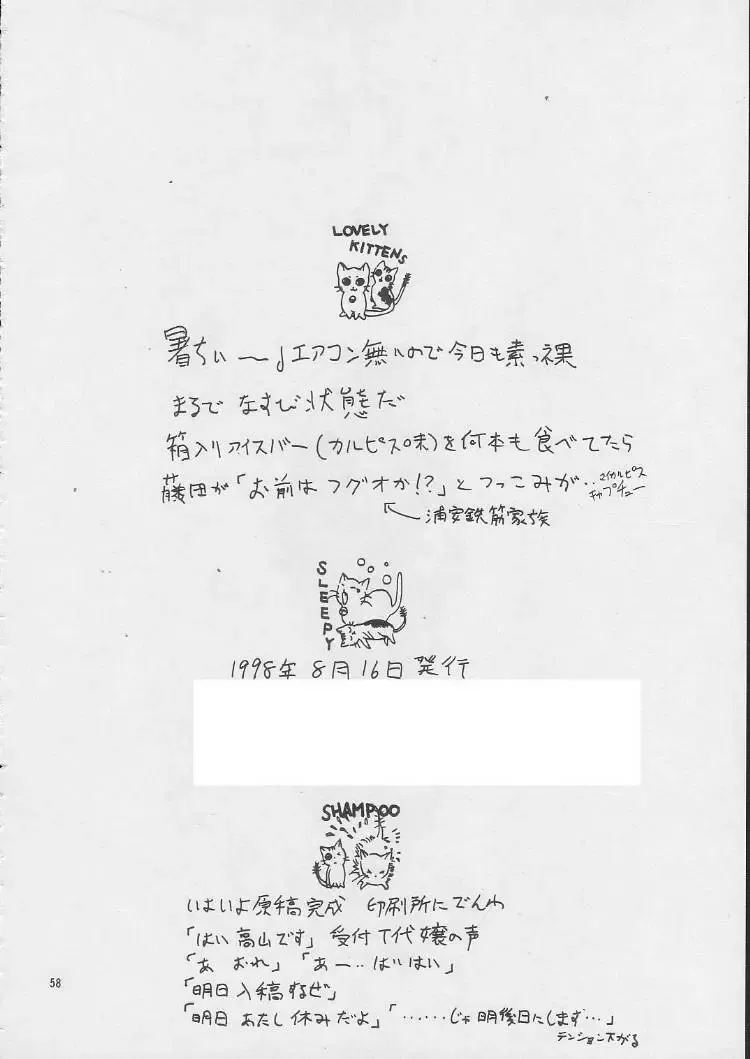 LOVELY
KITTENS
暑ちぃ〜♩エアコン無いので今日も素っ裸
まるで なすび状態だ
箱入りアイスバー(カルピス味)を何本も食べてたら
藤田が「お前は フグオか!?」とつっこみが‥
カルピス
浦安鉄筋家族
SLEEPY
1998年 8月16日 発行
SHAMPOO
いよいよ原稿完成 印刷所にでんわ
「はい 高山です」 受付 T代 嬢の声
「あ おれ」「あー‥はいはい」
「明日 入稿すなぜ」
「明日 あたし 休みだよ」「……じゃ 明後日にします…」
テンション下がる
58